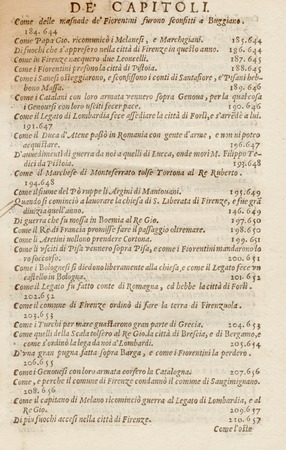 DE' CAPITOLI.
Come delle masnade de' Fiorentini furono sconfitti a Buggiano.
184. 644
Come Papa Gio. ricomunicò i Melanesi, e Marchegiani. 185.644
Di fuochi che s'appresero nella città di Firenze in questo anno. 186.644
Come in Firenze nacquero due Leoncelli. 187.645
Come i Fiorentini presono la città di Pistoia. 188.645
Come i Sanesi osteggiarono, e sconfissono i conti di Santafiore, e Pisani hebbono Massa. 189.646
Come i Catalani con loro armata vennero sopra Genova, per la qual cosa i Genovesi con loro usciti fecer pace. 190.646
Come il Legato di Lombardia fece assediare la città di Forlì, e s'arrendè a lui.
191.647
Come il Duca d'Atene passò in Romania con gente d'arme, e non vi poteo acquistare. 196.647
D'avvedimenti di guerra da noi a quelli di Lucca, onde morì M. Filippo Tedici da Pistoia. 193.648
Come il Marchese di Monteferrato tolse Tortona al Re Ruberto.
194.648
Come il fiume del Pò ruppe li Argini di Mantovani. 195.649
Quando si cominciò a lavorare la chiesa di S. Liberata di Firenze, e fue gran divizia quell'anno. 196.649
Di guerra che fu mossa in Boemia al Re Gio. 197.650
Come il Re di Francia promisse fare il passaggio oltremare. 198.650
Come li Aretini vollono prendere Cortona. 199.651
Come li usciti di Pisa vennero sopra Pisa, e come i Fiorentini mandarono loro soccorso. 200.651
Come i Bolognesi si diedono liberamente alla chiesa, e come il Legato fece un castello in Bologna. 201.652
Come il Legato fu fatto conte di Romagna, ed hebbe la città di Forlì.
202.652
Come il comune di Firenze ordinò di fare la terra di Firenzuola.
203.653
Come i Turchi per mare guastarono gran parte di Grecia. 204.653
Come quelli della Scala tolsero al Re Gio. da città di Brescia, e di Bergamo, e come s'ordinò la lega da noi a' Lombardi. 205.654
D'una gran pugna fatta sopra Barga, e come i Fiorentini la perdero.
206.655
Come i Genovesi con loro armata corsero la Catalogna. 207.656
Come, e perche il comune di Firenze condannò il comune di Sangimignano.
208.656
Come il capitano di Melano ricominciò guerra al Legato di Lombardia, e al Re Gio. 209.657
Di più fuochi accesi nella città di Firenze. 210.657
Come l'oste